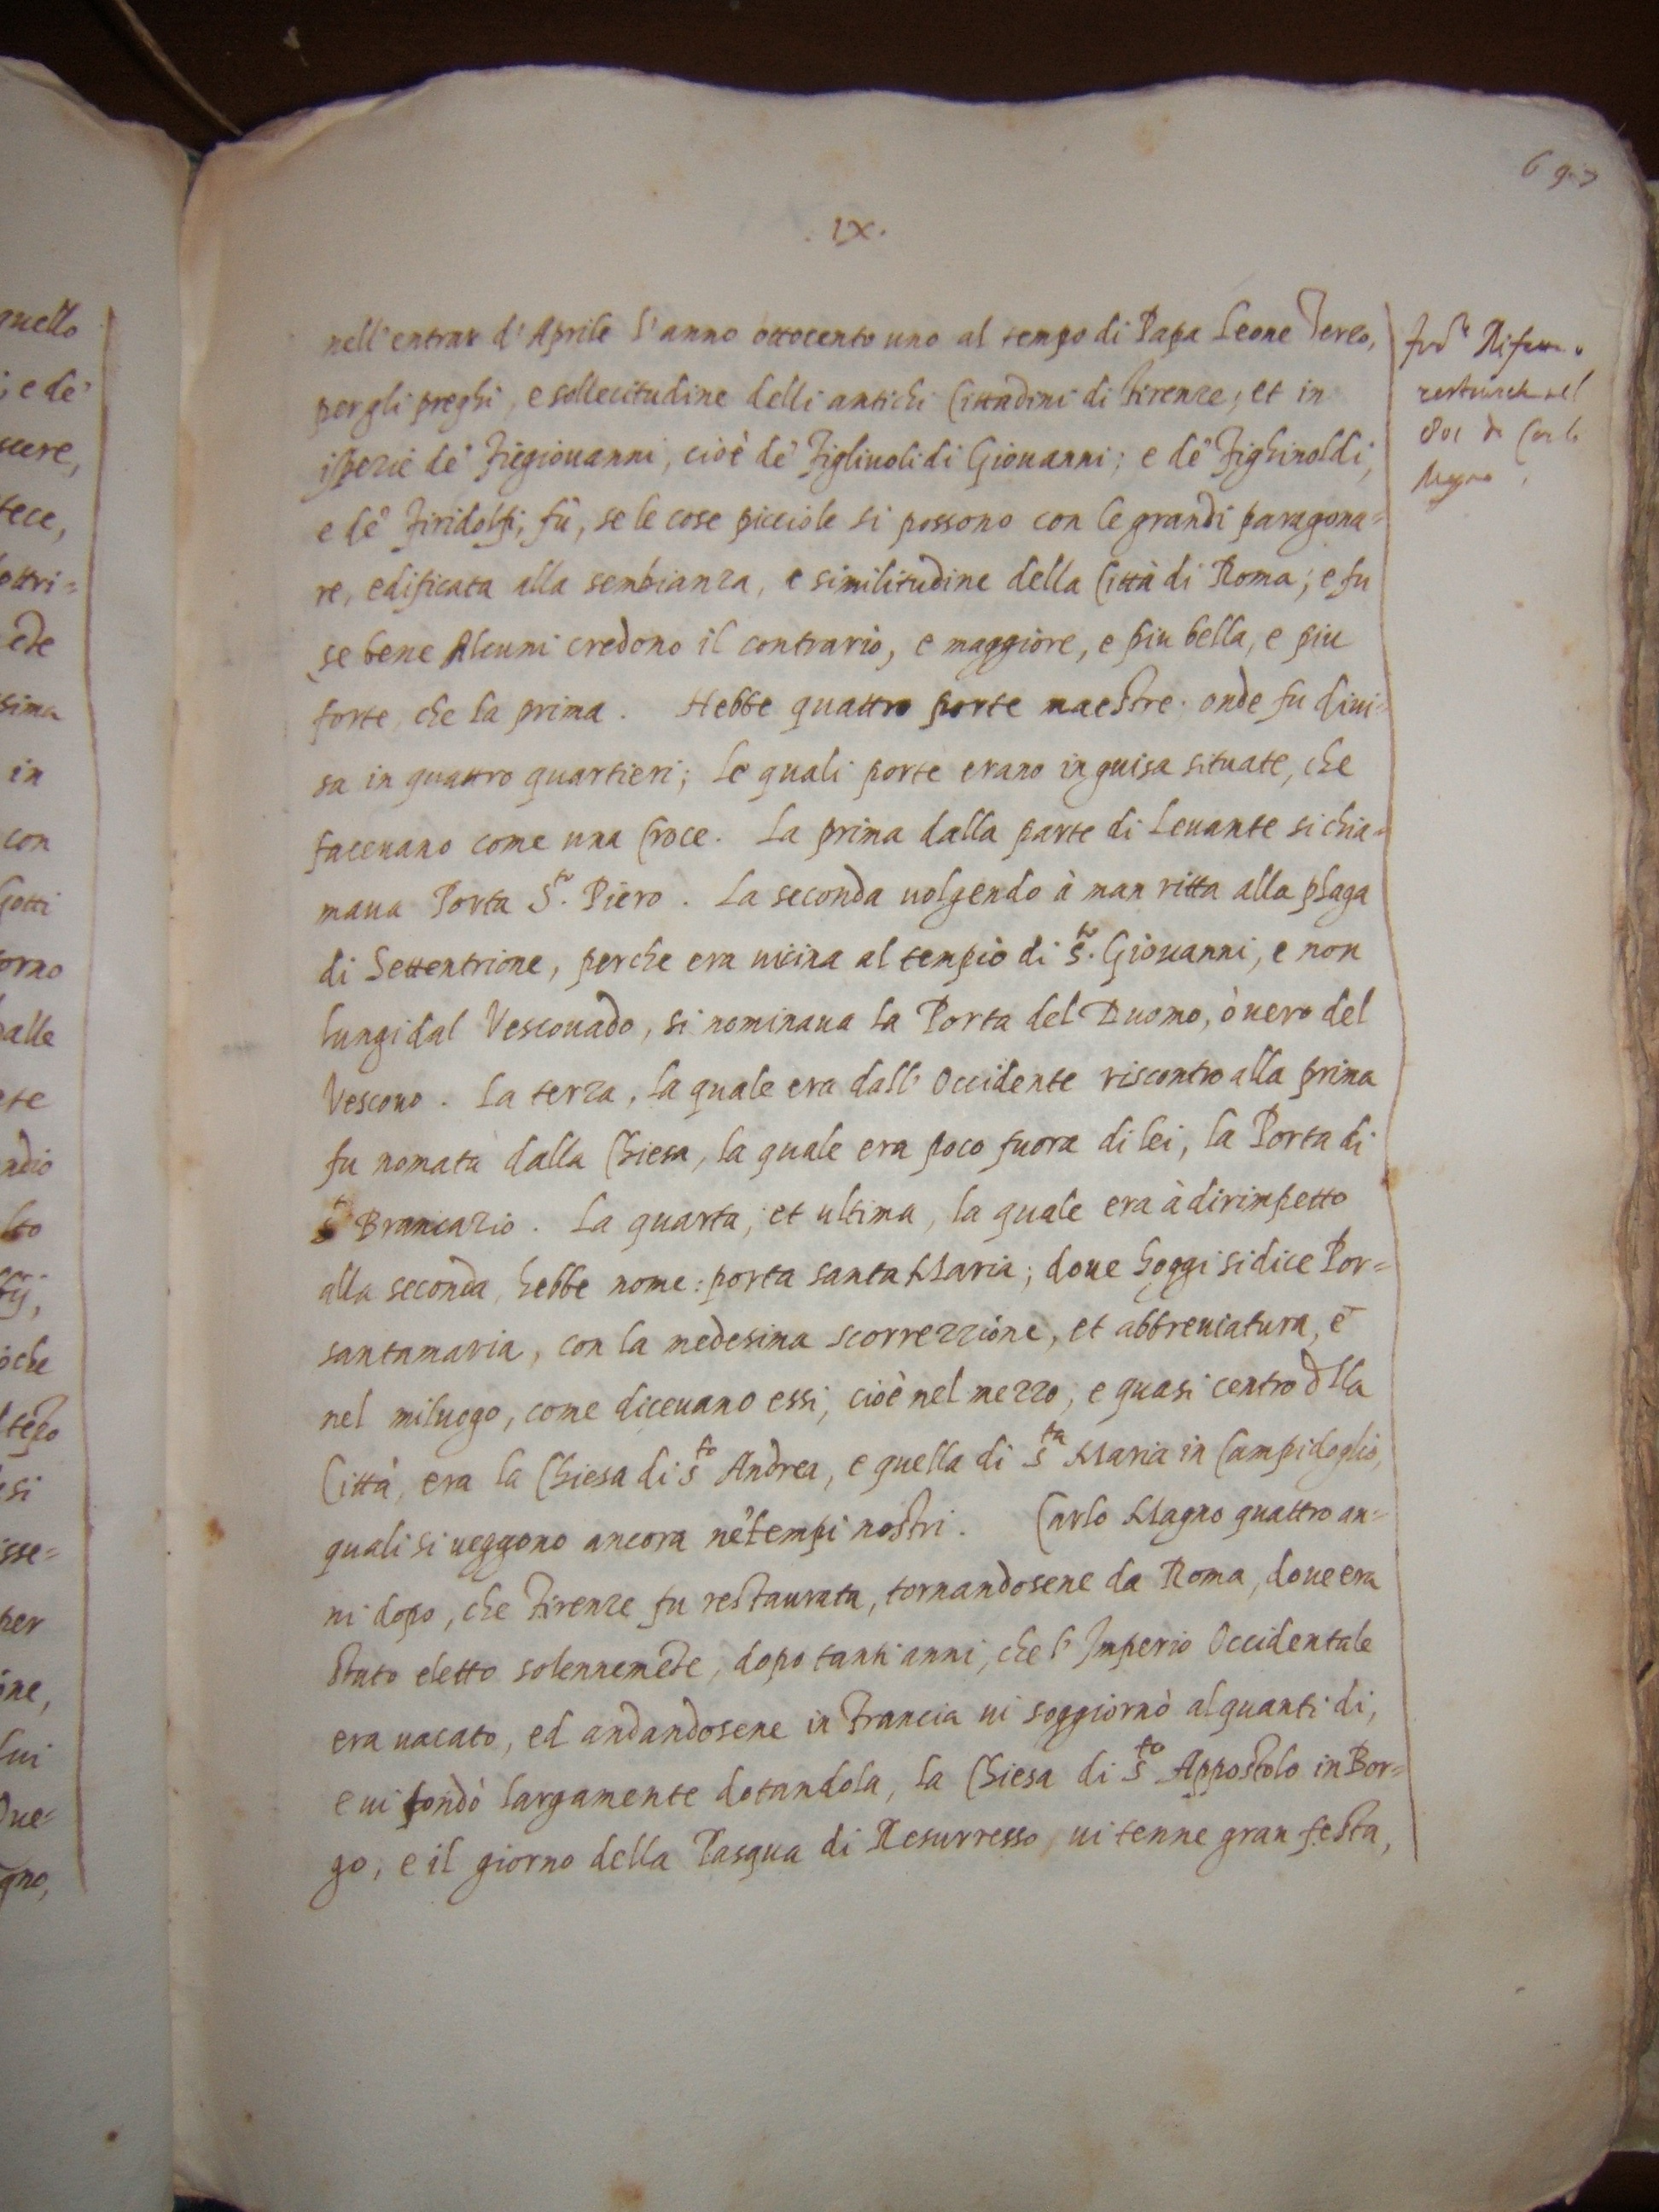 697
.IX.
nell'entrar d'Aprile l'anno ottocento uno al tempo di Papa Leone Terzo,
per gli preghi, e sollecitudine delli antichi Cittadini di Firenze; et in
ispezie de' Figiouanni, cioè de' Figliuoli di Giouanni; e de' Fighinoldi,
e de' Firidolfi; fù, se le cose picciole si possono con le grandi paragona=
re, edificata alla senbianza, e similitudine della Città di Roma; e fu
se bene Alcuni credono il contrario, e maggiore, e piu bella, e piu
forte, che la prima. Hebbe quattro porte maestre. onde fu diui=
sa in quattro quartieri; le quali porte erano in guisa situate, che
faceuano come una Croce. La prima dalla parte di Leuante si chia=
maua Porta S.to Piero. La seconda uolgendo à man ritta alla plaga
di Settentrione, perche era uicina al tempio di s.to Giouanni, e non
lungi dal Vescouado, si nominaua la Porta del Duomo, ò uero del
Vescouo. La terza, la quale era dall'Occidente riscontro alla prima
fu nomata dalla Chiesa, la quale era poco fuora di lei, la Porta di
s.to Brancazio. La quarta, et ultima, la quale era à dirimpetto
alla seconda, hebbe nome: porta santa Maria; doue hoggi si dice Por=
santamaria, con la medesima scorrezzione, et abbreuiatura, è
nel miluogo, come diceuano essi, cioè nel mezzo, e quasi centro dlla
Città, era la Chiesa di s.to Andrea, e quella di s.ta Maria in Campidoglio,
quali si ueggono ancora ne' tempi nostri. Carlo Magno quattro an=
ni dopo, che Firenze fu restaurata, tornandosene da Roma, doue era
stato eletto solennemēte, dopo tanti anni, che l'Imperio Occidentale
era uacato, ed andandosene in Francia ui soggiornò alquanti di,
e ui fondò largamente dotandola, la Chiesa di s.to Appostolo in Bor=
go, e il giorno della Pasqua di Resurresso, ui tenne gran festa,
801 da Carlo
Magno